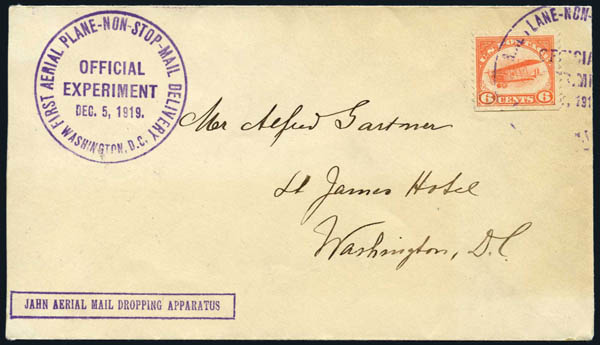 FIRST AERIAL PLANE-NON-STOP-MAIL DELIVERY
OFFICIAL
EXPERIMENT
DEC. 5, 1919.
WASHINGTON, D.C.
PLANE-NON-
OFFICIA
U.S. POSTAGE
6 CENTS 6
Mr Alfred Gardner
St James Hotel
Washington, D.C.
JAHN AERIAL MAIL DROPPING APPARATUS